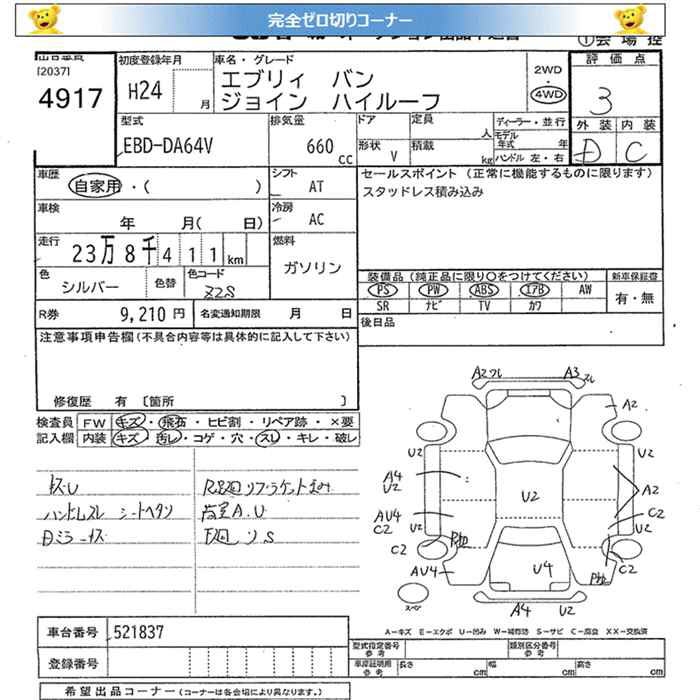 完全ゼロ切りコーナー
①会 場 控
[2037]
4917
初度登録年月
H24
月
車名・グレード
エブリィ　バン
ジョイン　ハイルーフ
2WD
・
4WD
評 価 点
3
外 装
内 装
D
C
型式
EBD-DA64V
排気量
660
cc
ドア
形状
V
定員
人
積載
kg
ディーラー・並行
モデル
年式
年
ハンドル 左・右
車歴
自家用・(　　)
シフト
AT
セールスポイント (正常に機能するものに限ります)
スタッドレス積み込み
車検
年　月(　日)
冷房
AC
走行
23万8千411km
燃料
ガソリン
色
シルバー
色替
色コード
Z2S
装備品 (純正品に限り○をつけてください)
新車保証書
PS
PW
ABS
エアB
AW
SR
ナビ
TV
カワ
有・無
R券
9,210 円
名変通知期限
月
日
後日品
注意事項申告欄(不具合内容等は具体的に記入して下さい)
修復歴　有　[箇所　]
検査員
記入欄
FW
キズ・飛石・ヒビ割・リペア跡・×要
内装
キズ・汚レ・コゲ・穴・スレ・キレ・破レ
キズU
ハンドルスレ シートヘタリ
荷室A.U
下回 サS
A2
A3
A2
U2
U2
A4
U2
U2
A2
AU4
C2
U2
U2
C2
C2
C2
AU4
U4
A4
U2
スペア
A-キズ E-エクボ U-凹み W-補修跡 S-サビ C-腐食 XX-交換済
車台番号
521837
登録番号
型式指定番号
参考
類別区分番号
参考
車庫証明用
参考
長さ
cm
幅
cm
高さ
cm
希望出品コーナー (コーナーは各会場により異なります。)